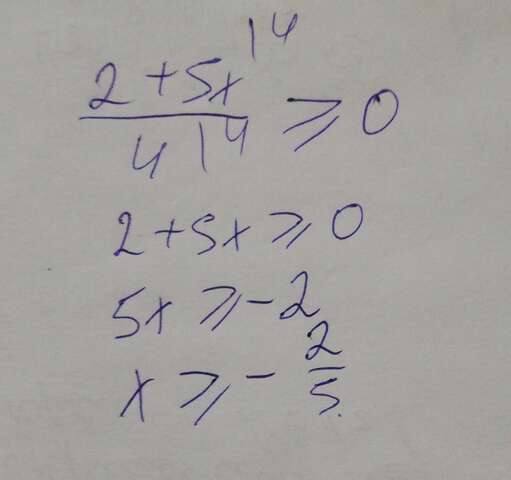 (2 + 5x) / 4 |4 ≥ 0 |4
2 + 5x ≥ 0
5x ≥ - 2
x ≥ - 2/5